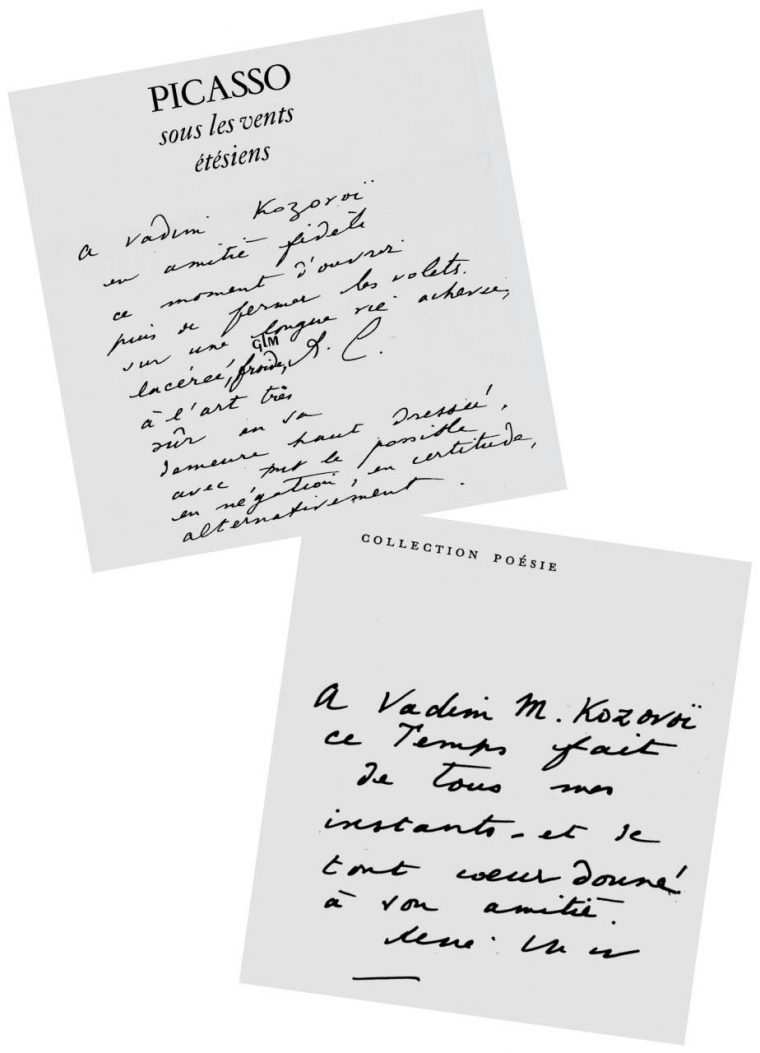 PICASSO
sous les vents
étésiens
A Vadim Kozovoï
en amitié fidèle
ce moment d'ouvrir
puis de fermer les volets
sur une longue vie achevée,
GLM
lacérée, froide, R. C.
à l'art très
sûr en sa
demeure haut dressée,
avec tout le possible
en négation, en certitude,
alternativement.
COLLECTION POÉSIE
A Vadim M. Kozovoï
ce Temps fait
de tous mes
instants - et de
tout cœur donné
à son amitié.
René Char